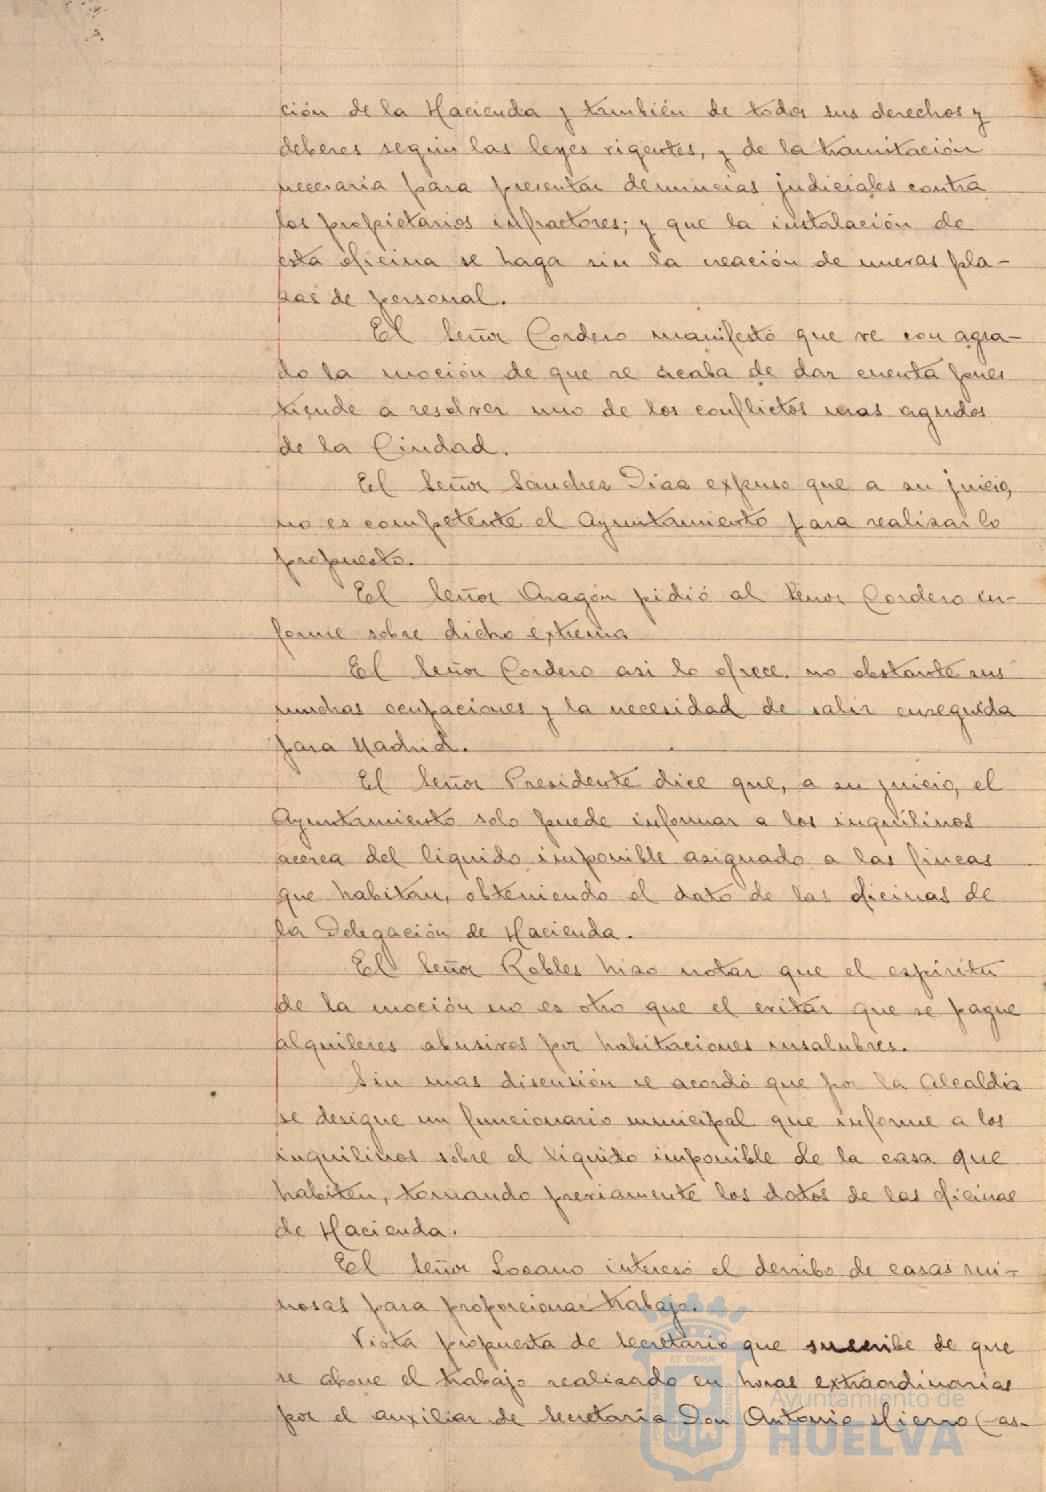 ción de la Hacienda y también de todos sus derechos y
deberes según las leyes vigentes, y de la tramitación
necesaria para presentar denuncias judiciales contra
los propietarios infractores; y que la instalación de
esta oficina se haga sin la creación de nuevas pla-
zas de personal.
El Señor Cordero manifestó que ve con agra-
do la moción de que se acaba de dar cuenta pues
tiende a resolver uno de los conflictos mas agudos
de la Ciudad.
El Señor Sanchez Diaz expuso que a su juicio,
no es competente el Ayuntamiento para realizar lo
propuesto.
El Señor Aragón pidió al Señor Cordero in-
forme sobre dicho extremo
El Señor Cordero asi lo ofrece, no obstante sus
muchas ocupaciones y la necesidad de salir enseguida
para Madrid.
El Señor Presidente dice que, a su juicio, el
Ayuntamiento solo puede informar a los inquilinos
acerca del liquido imponible asignado a las fincas
que habitan, obteniendo el dato de las oficinas de
la Delegación de Hacienda.
El Señor Robles hizo notar que el espíritu
de la moción no es otro que el evitar que se pague
alquileres abusivos por habitaciones insalubres.
Sin mas discusión se acordó que por la Alcaldia
se designe un funcionario municipal que informe a los
inquilinos sobre el liquido imponible de la casa que
habiten, tomando previamente los datos de las oficinas
de Hacienda.
El Señor Lozano interesó el derribo de casas rui-
nosas para proporcionar trabajo.
Vista propuesta de Secretario que suscribe de que
se abone el trabajo realizado en horas extraordinarias
por el auxiliar de Secretaría Don Antonio Hierro Cas-
Ayuntamiento de
HUELVA